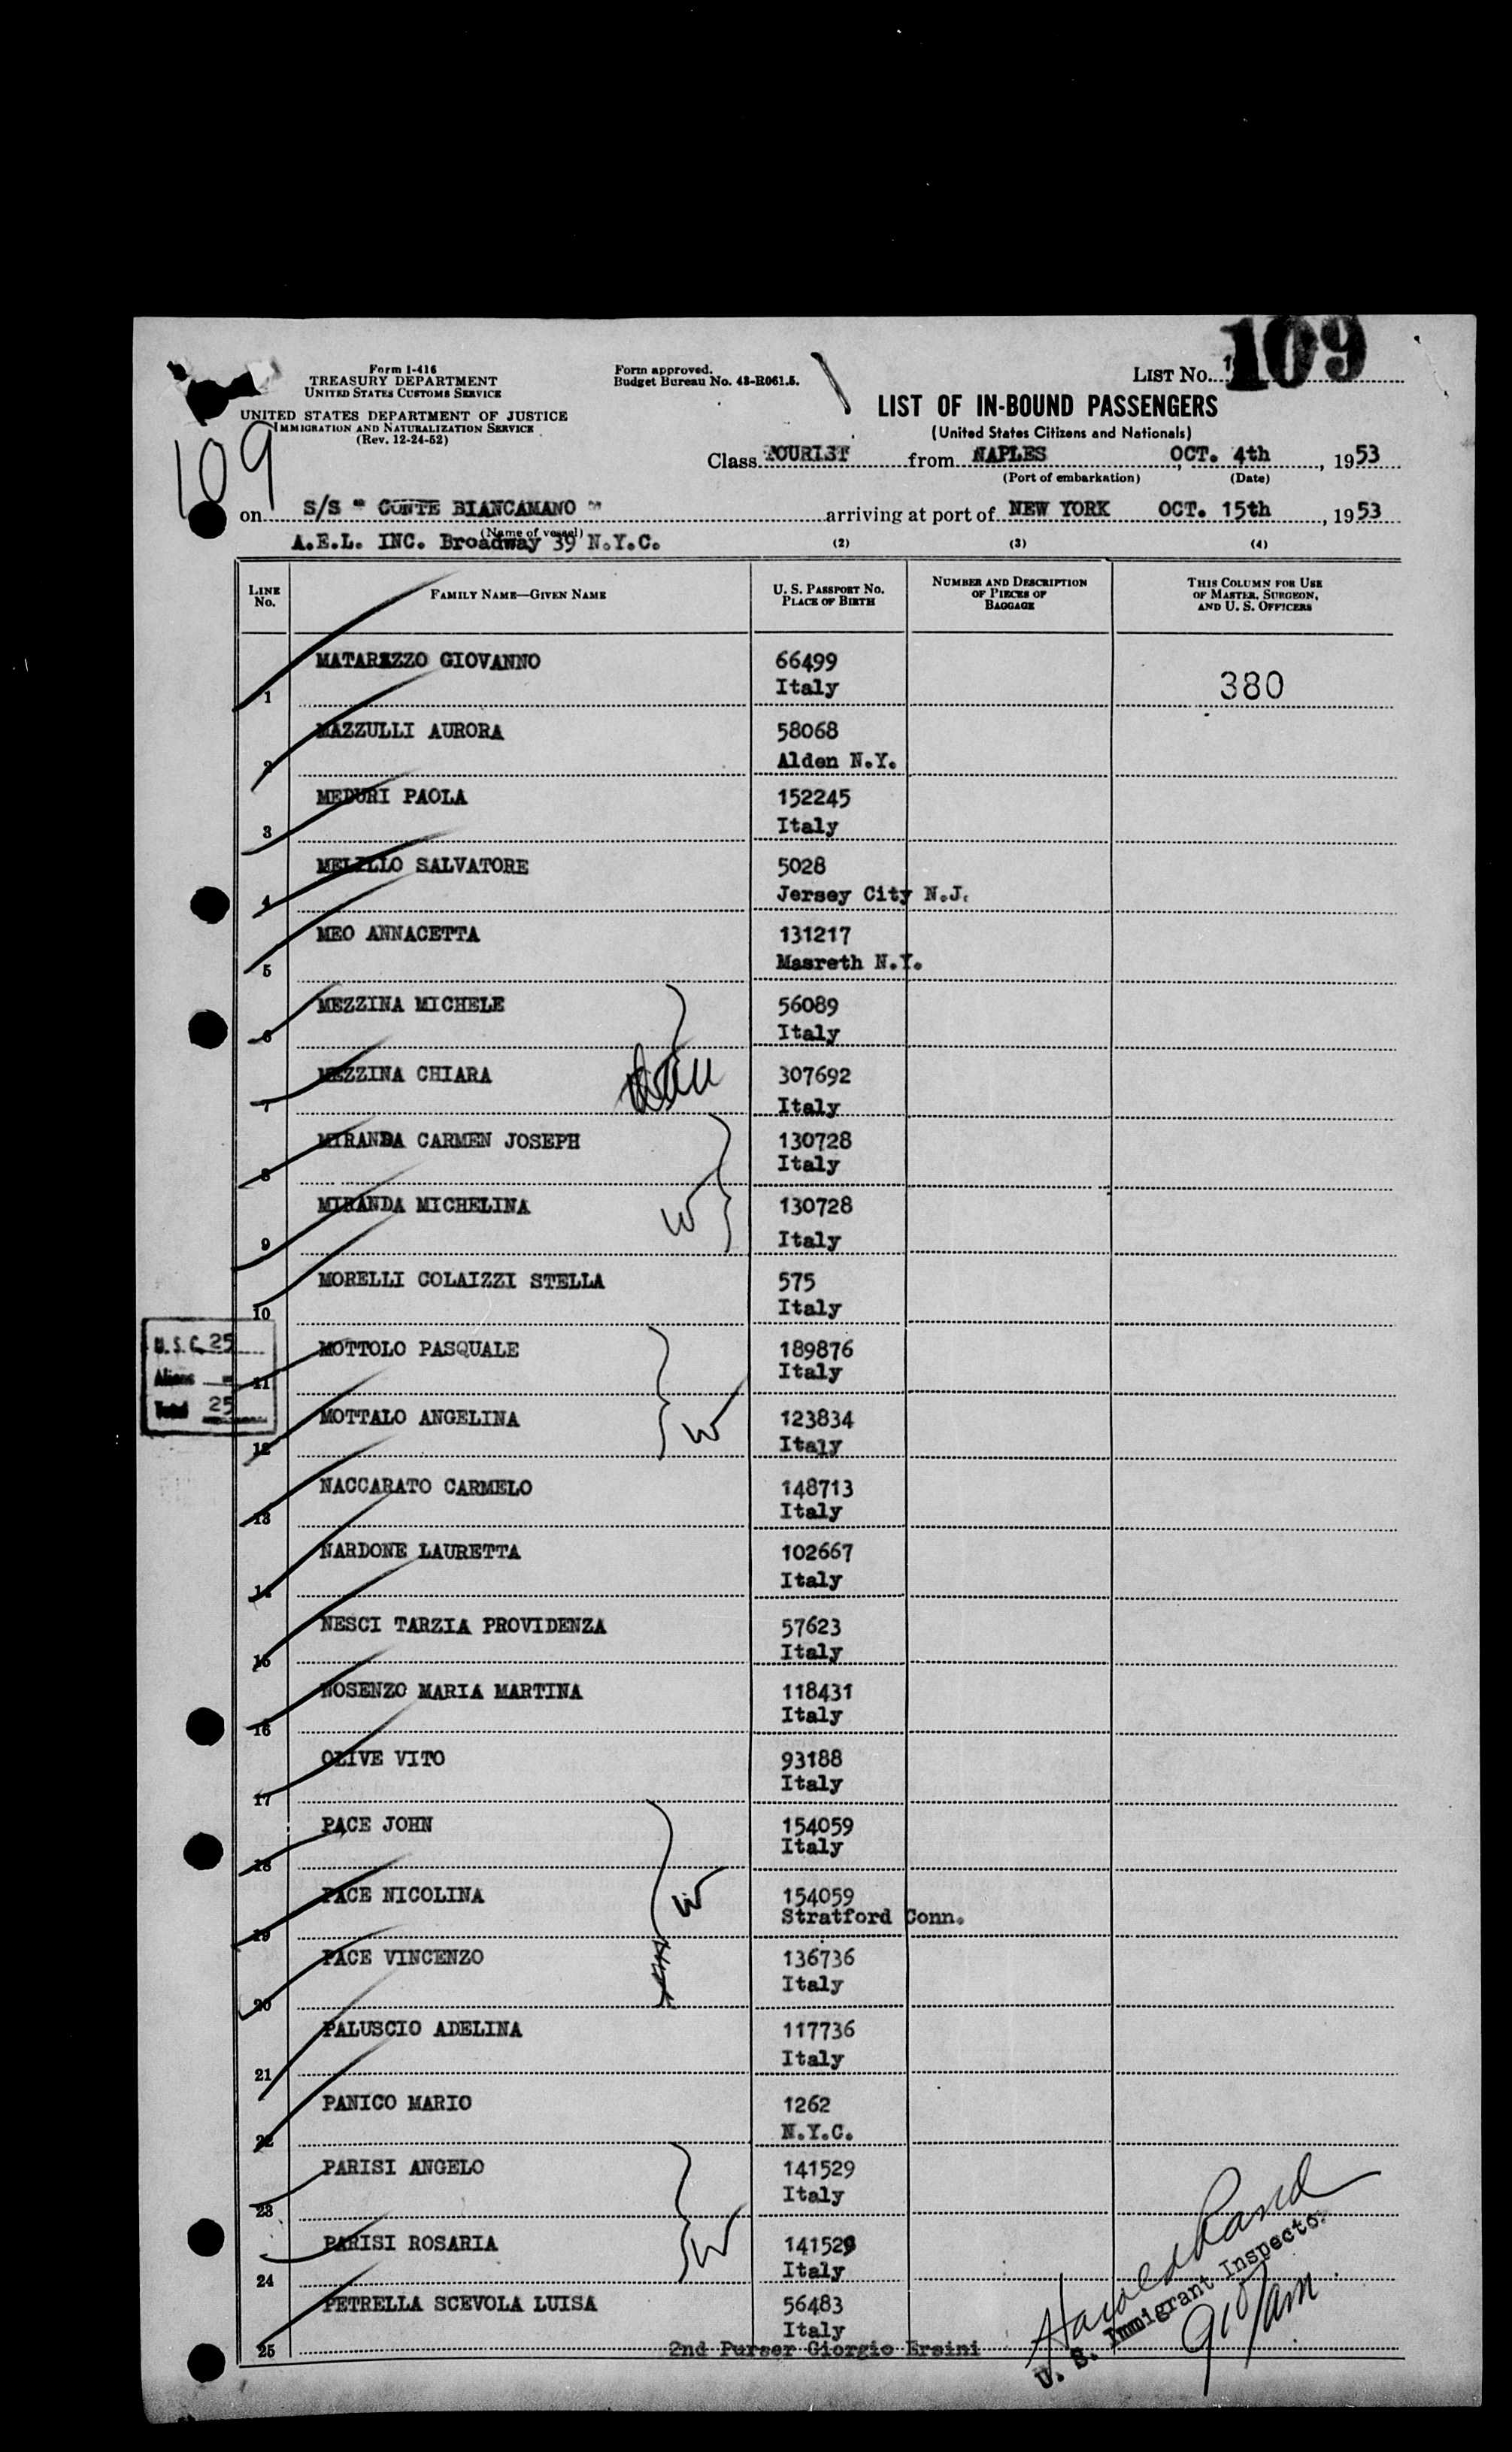 109
Form I-416
TREASURY DEPARTMENT
UNITED STATES CUSTOMS SERVICE
UNITED STATES DEPARTMENT OF JUSTICE
IMMIGRATION AND NATURALIZATION SERVICE
(Rev. 12-24-52)
Form approved.
Budget Bureau No. 43-R061.5.
LIST NO.
109
LIST OF IN-BOUND PASSENGERS
(United States Citizens and Nationals)
Class TOURIST from NAPLES, OCT. 4th, 1953
(Port of embarkation) (Date)
on S/S " CONTE BIANCAMANO " arriving at port of NEW YORK OCT. 15th, 1953
(Name of vessel)
A.E.L. INC. Broadway 39 N.Y.C.
(2) (3) (4)
LINE NO. FAMILY NAME—GIVEN NAME U. S. PASSPORT NO. PLACE OF BIRTH NUMBER AND DESCRIPTION OF PIECES OF BAGGAGE THIS COLUMN FOR USE OF MASTER, SURGEON, AND U. S. OFFICERS
MATARAZZO GIOVANNO 66499
1 Italy 380
MAZZULLI AURORA 58068
2 Alden N.Y.
MEDURI PAOLA 152245
3 Italy
MELILLO SALVATORE 5028
4 Jersey City N.J.
MEO ANNACETTA 131217
5 Masreth N.Y.
MEZZINA MICHELE 56089
6 Italy
MEZZINA CHIARA 307692
7 Italy
MIRANDA CARMEN JOSEPH 130728
8 Italy
MIRANDA MICHELINA W 130728
9 Italy
MORELLI COLAIZZI STELLA 575
10 Italy
U.S.C. 25
Aliens -
Total 25
MOTTOLO PASQUALE 189876
11 Italy
MOTTALO ANGELINA W 123834
12 Italy
NACCARATO CARMELO 148713
13 Italy
NARDONE LAURETTA 102667
14 Italy
NESCI TARZIA PROVIDENZA 57623
15 Italy
NOSENZO MARIA MARTINA 118431
16 Italy
OLIVE VITO 93188
17 Italy
PACE JOHN 154059
18 Italy
PACE NICOLINA W 154059
19 Stratford Conn.
PACE VINCENZO 136736
20 Italy
PALUSCIO ADELINA 117736
21 Italy
PANICO MARIO 1262
22 N.Y.C.
PARISI ANGELO 141529
23 Italy
PARISI ROSARIA W 141529
24 Italy
PETRELLA SCEVOLA LUISA 56483
25 Italy
2nd Purser Giorgio Ersini
Harold Rand
U. S. Immigrant Inspector